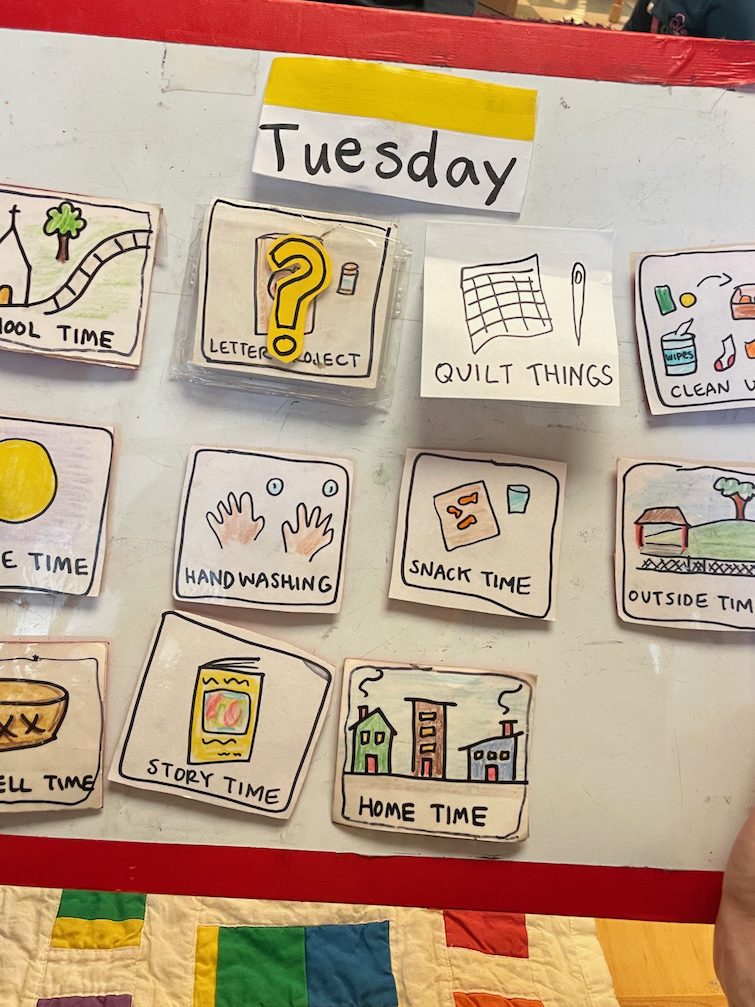 Tuesday
OOL TIME
?
LETTER PROJECT
QUILT THINGS
WIPES
CLEAN U
E TIME
HANDWASHING
SNACK TIME
OUTSIDE TIM
XX
ELL TIME
STORY TIME
HOME TIME